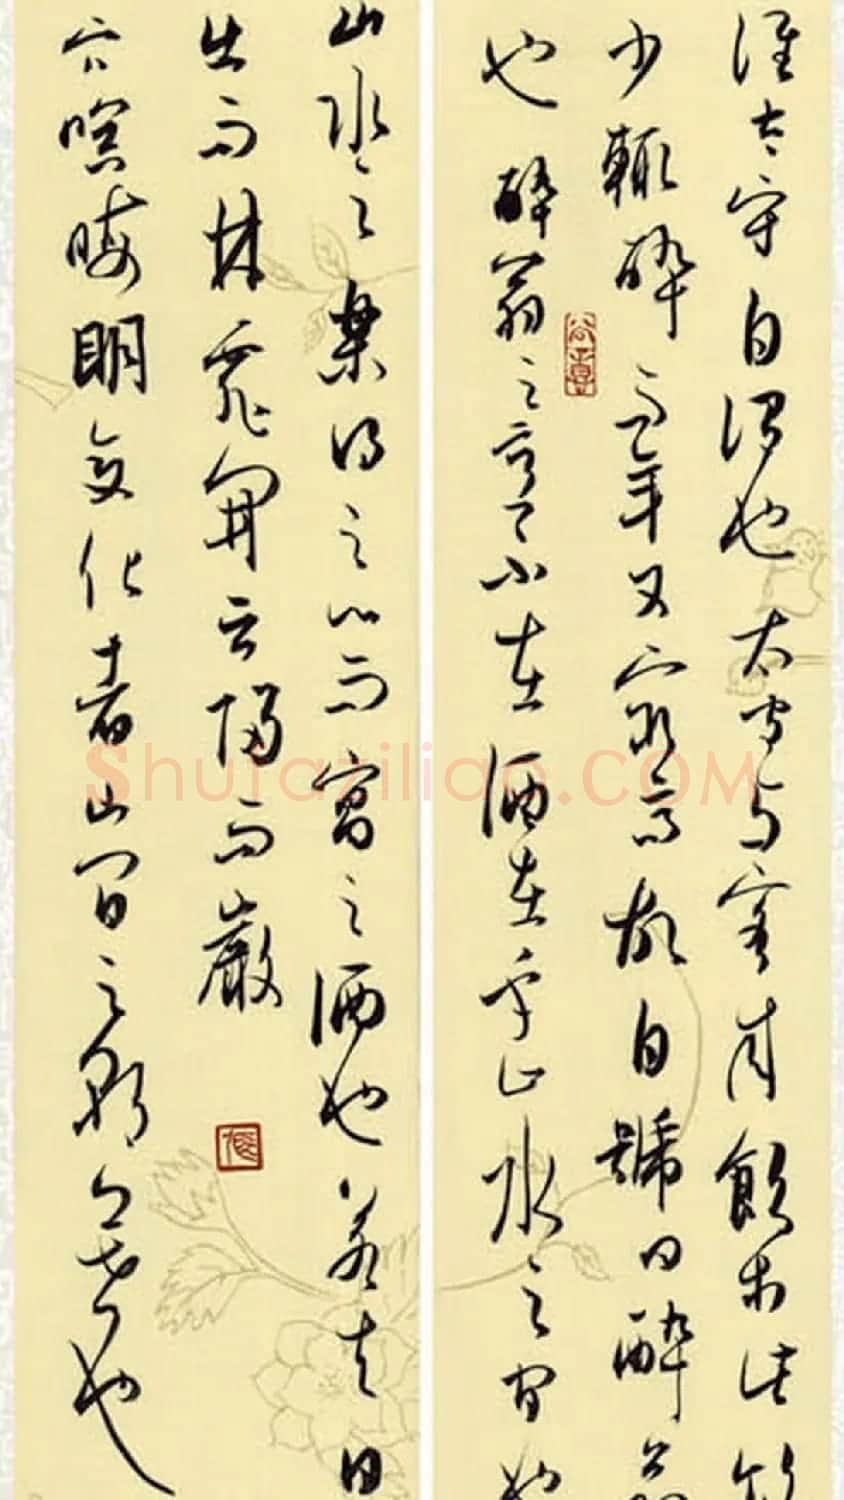 誰太守自謂也太守与客来飲於此飲
少輒醉而年又最高故自號曰醉翁
也醉翁之意不在酒在乎山水之間也
山水之樂得之心而寓之酒也若夫日
出而林霏開云歸而巖
穴暝晦明变化者山間之朝暮也
Shufazilian.COM